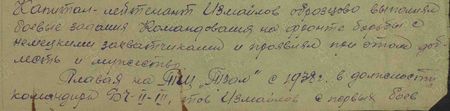 Капитан-лейтенант Измайлов образцово выполнял
боевые задания Командования на фронте борьбы с
немецкими захватчиками и проявил при этом доб-
лесть и мужество.
Плавая на ТЩ "Трал" с 1938 г. в должности
командира БЧ-II-III, тов Измайлов с первых боев